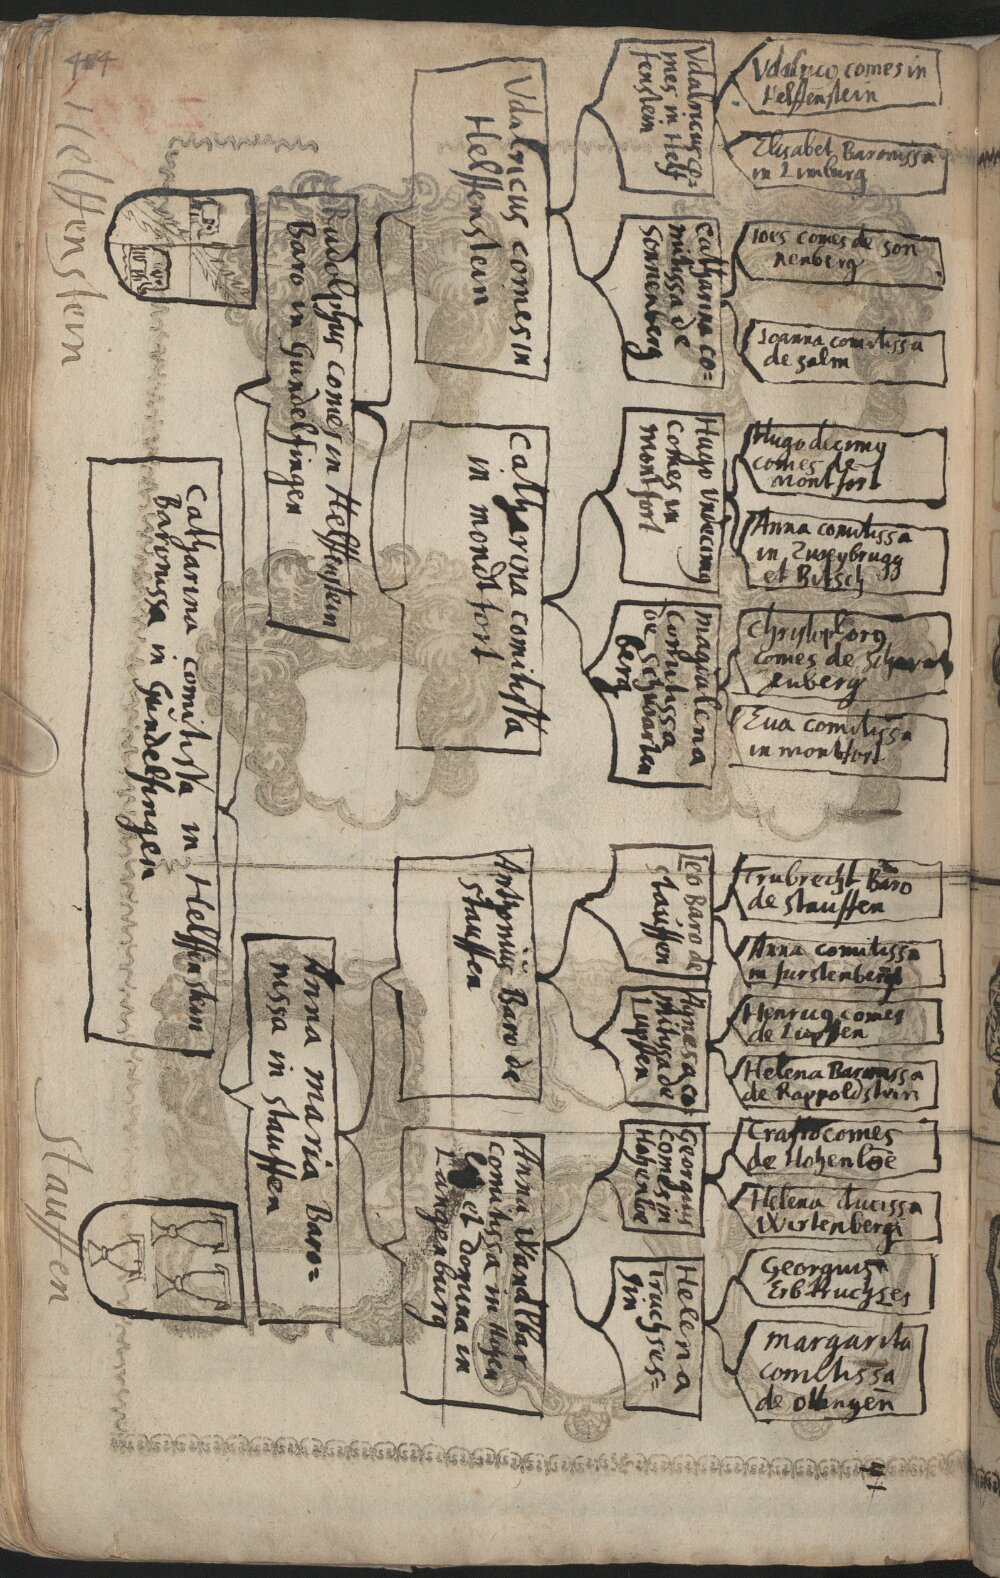 404
Helffenstein
Stauffen
Catharina comitissa in Helffenstein
Baronissa in Gundelfingen
Rudolphus comes in Helffenstein
Baro in Gundelfingen
Anna Maria Baro=
nissa in Stauffen
Vdalricus comes in
Helffenstein
Catharina comitissa
in Montfort
Anthonius Baro de
Stauffen
Anna
comitissa in Hohen
loe et domina in
Langenburg
Vdalricus co=
mes in Helf
fenstein
Catharina co=
mitissa de
Sonnenberg
Hugo Vndecimus
comes in
Montfort
Magdalena
comitissa
de Schwartzen
berg
Leo Baro de
Stauffen
Agnesa co=
mitissa de
Lupffen
Georgius
comes in
Hohenloe
Helena
truchses=
sin
Vdalrico comes in
Helffenstein
Elisabet Baronissa
in Limburg
comes de Son
nenberg
Ioanna comitissa
de Salm
Hugo decimus
comes de
Montfort
Anna comitissa
in Zweybrugg
et Bitsch
Christophorus
comes de Schwartz
enberg
Eua comitissa
in Montfort
Trubrecht Baro
de Stauffen
Anna comitissa
in Furstenberg
Henricus comes
de Lupffen
Helena Baronissa
de Rappoldstein
Crafto comes
de Hohenloe
Helena ducissa
Wirtenbergi
Georgius
Erbtruchses
Margarita
comitissa
de Ottingen